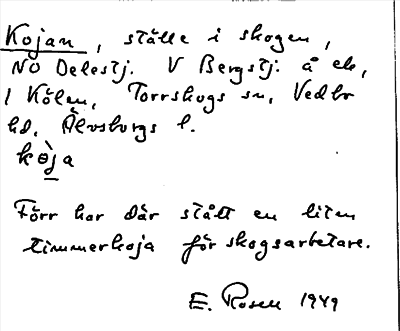 Kojan, ställe i skogen,
NO Delestj. V Bergstj. å ek,
1 Kölen, Torrskogs sn, Vedbo
hd, Älvsborgs l.
kòja
Förr har där stått en liten
timmerkoja för skogsarbetare.
E. Rosell 1949